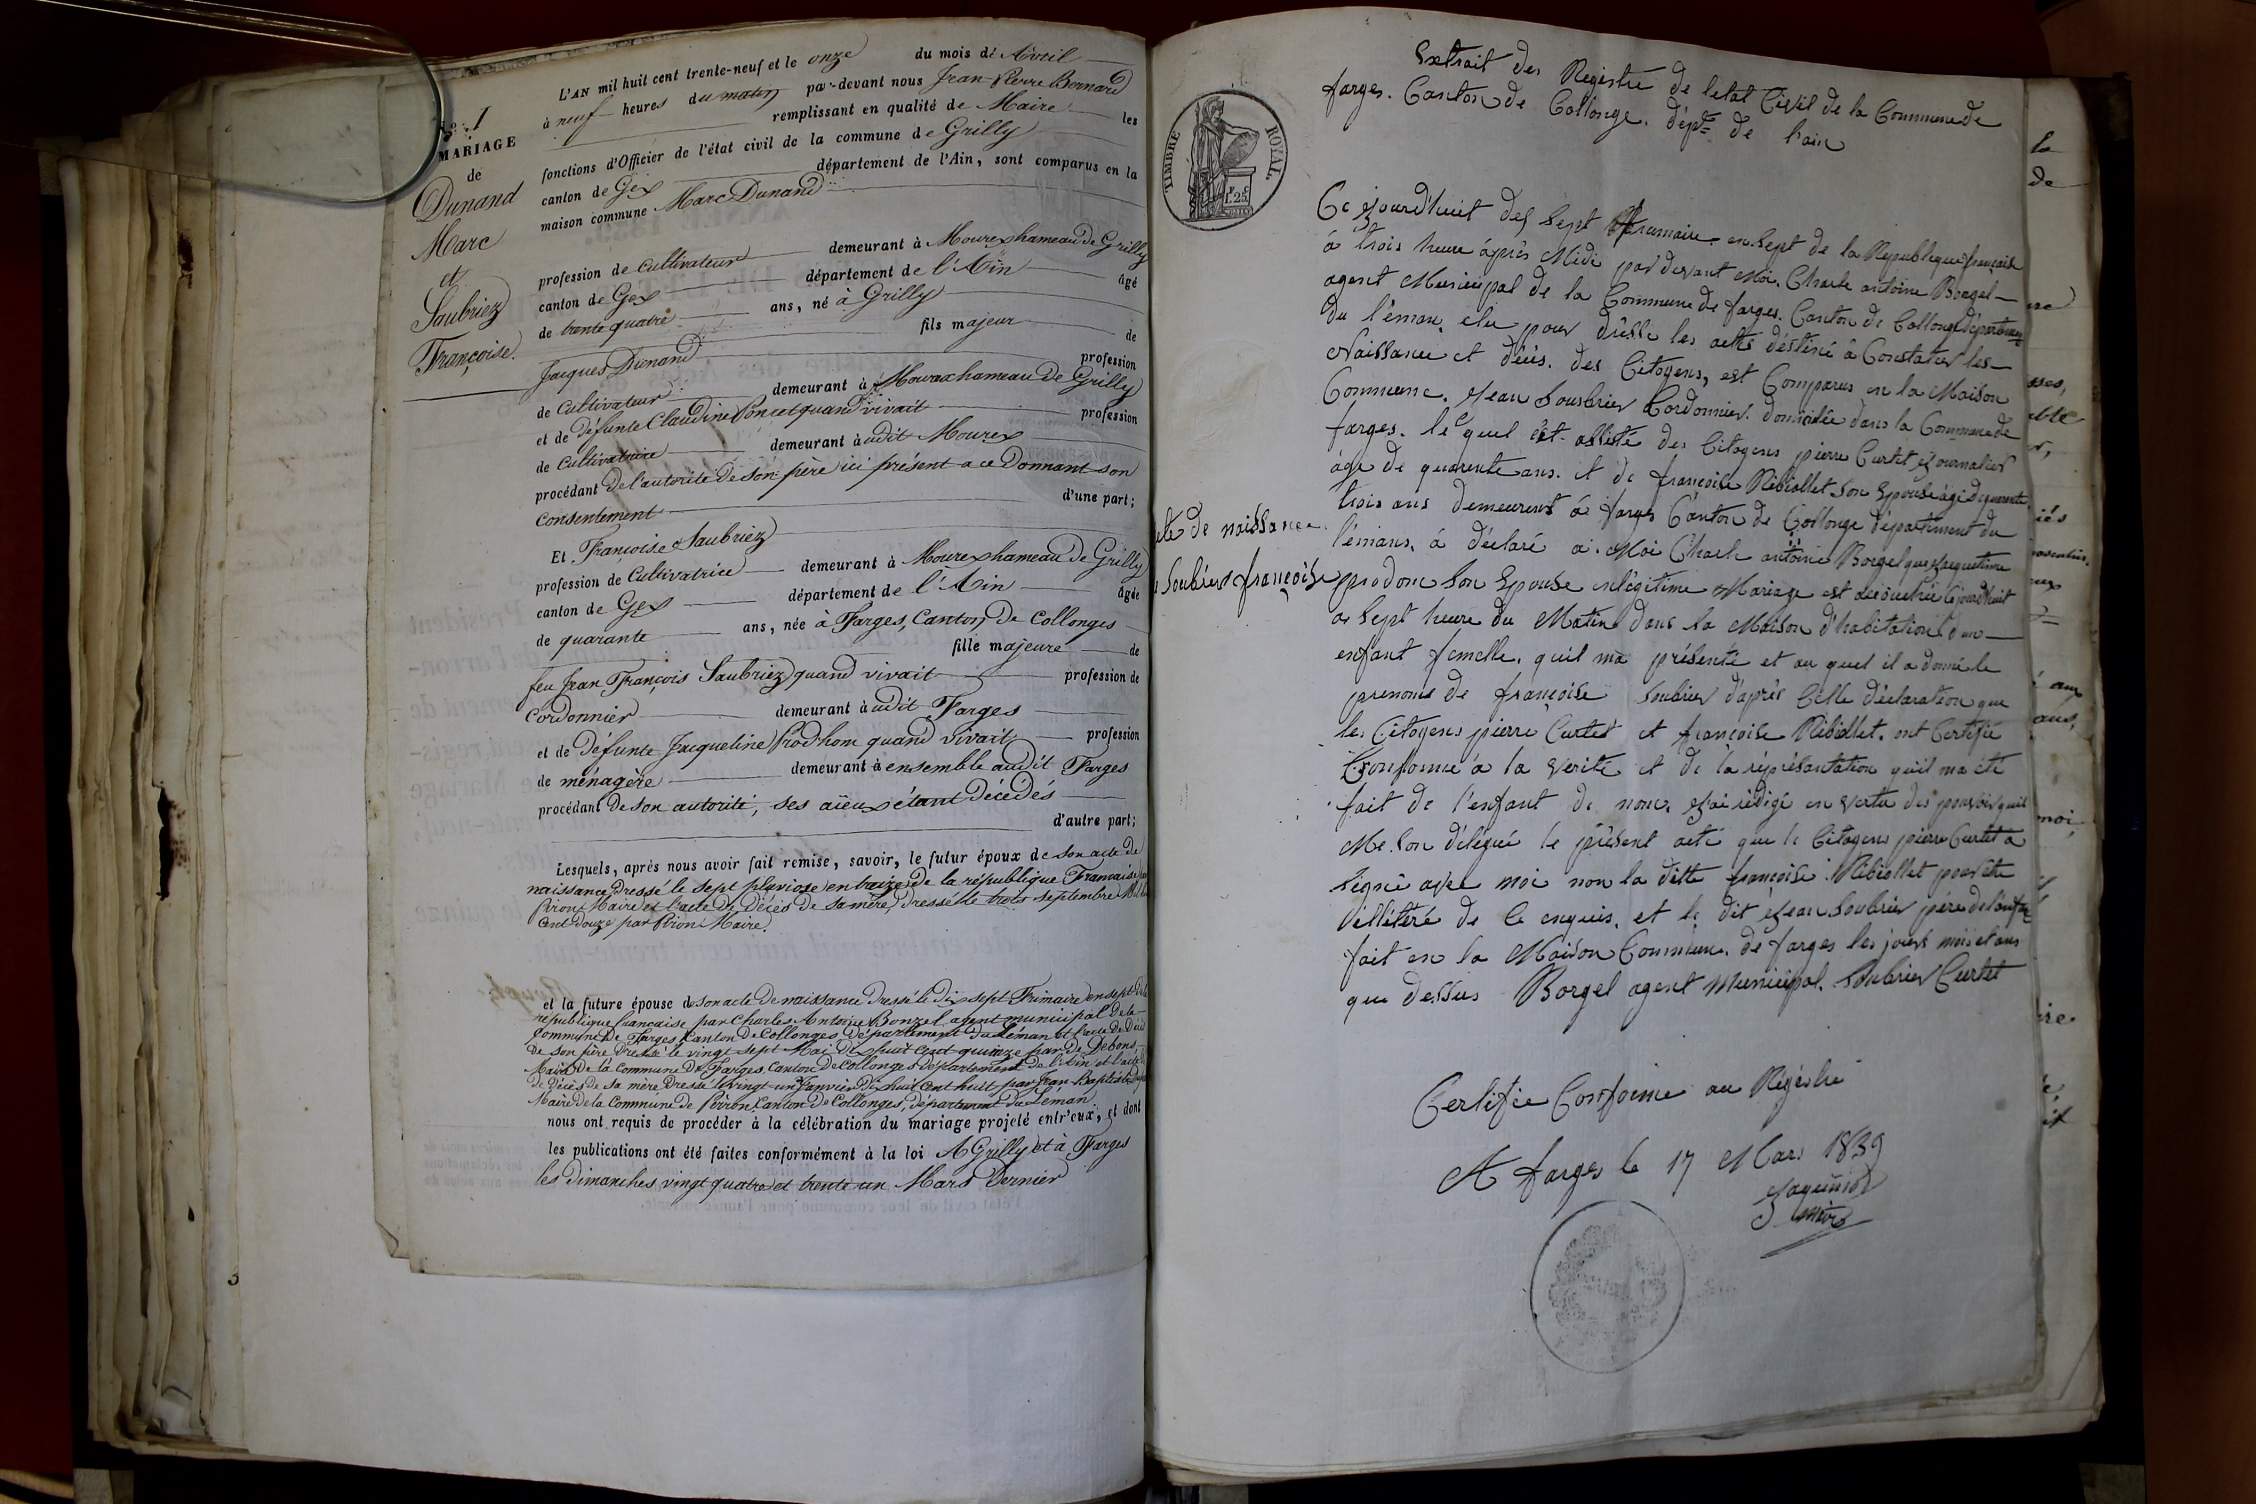 L'AN mil huit cent trente-neuf et le onze du mois de Avril
à neuf heures du matin par-devant nous Jean-Pierre Bornand
remplissant en qualité de Maire les
fonctions d'Officier de l'état civil de la commune de Grilly
canton de Gex département de l'Ain, sont comparus en la
maison commune Marc Dunand
N.º 1
MARIAGE
de
Dunand
Marc
et
Saubriez
Françoise.
profession de cultivateur demeurant à Mourex hameau de Grilly
canton de Gex département de l'Ain âgé
de trente quatre ans, né à Grilly
fils majeur de
Jacques Dunand profession
de cultivateur demeurant à Mourex hameau de Grilly
et de défunte Claudine Poncet quand vivait profession
de cultivatrice demeurant à udit Mourex
procédant de l'autorité de son père ici présent a ce donnant son
consentement d'une part;
Et Françoise Saubriez
profession de Cultivatrice demeurant à Mourex hameau de Grilly
canton de Gex département de l'Ain âgée
de quarante ans, née à Farges, Canton de Collonges
fille majeure de
feu Jean François Saubriez quand vivait profession de
cordonnier demeurant à udit Farges
et de défunte Jacqueline Prodhom quand vivait profession
de ménagère demeurant à ensemble audit Farges
procédant de son autorité, ses aïeux étant décédés
d'autre part;
Lesquels, après nous avoir fait remise, savoir, le futur époux de son acte de
naissance dressé le sept pluviose en treize de la république Francaise
Piron Maire et l'acte de décès de sa mère, dressé le trois septembre Mil
Cent douze par Piron Maire.
et la future épouse de son acte de naissance dressé le dix sept Frimaire en sept de la
république française par Charles Antoine Bonzel agent municipal de la
Commune de Farges Canton de Collonges, département du Léman et l'acte de Décès
de son père dressé le vingt sept Mai dix huit Cent quinze par De Debons,
Maire de la commune de Farges, canton de Collonges département de l'Ain et l'acte
de Décès de sa mère dressé le vingt un Janvier dix huit Cent huit par Jean Baptiste
Maire de la Commune de Péron Canton de Collonges, département du Léman
nous ont requis de procéder à la célébration du mariage projeté entr'eux, et dont
les publications ont été faites conformément à la loi A Grilly et à Farges
les dimanches vingt quatre et trente un Mars Dernier
Extrait des Registre de letat Civil de la Commune de
farges. Canton de Collonge. dépt. de l'ain
TIMBRE ROYAL.
1.25
Ce ejourd'huit des sept frumaire. en sept de la Republique française
à trois heure áprès Midi par devant Moi. Charle antoine Borgel
agent Municipal de la Commune de farges. Canton de Collonge départemant
du l'éman, elu pour drésse les actes déstiné à Constater les
Naissance et décés. des Citoyens, est Comparus en la Maison
Commune. Jean Soubrier Cordonnier. domicilée dans la Commune de
farges. le quel ét. assisté des Citoyens pierre Curtet ejournalier
âge de quarente ans. et de françoise Rébiollet son Epouse âgé de quarente
trois ans demeurent á farges Canton de Collonge département du
l'émans. á déclaré a. Moi Charle antoine Borgel que ejaquetinne
acte de naissance.
Soubrier françoise
prodom son Epouse en légitime Mariage est accouchée Cejourdhuit
a sept heure du Matin dans la Maison d'habitation d'un
enfant femelle. quil ma présenté et au quel il a donné le
prenoms de françoise Soubrier d'áprès Celle déclaration que
les Citoyens pierre Curtet et françoise Rébiollet. ont Certifié
Conforme á la verite et de la réprésantation quil ma été
fait de l'enfant de nomé, ejai rédigé en vertu des pouvoir quil
Me. son délégué le présent acté que le Citoyens pierre Curtet a
signé avec moi non la ditte françoise Rébiollet pour ete
illétéré de Ce enquis. et le dit ejean Soubrier pére de lanfan
fait en la Maison Commune. de farges les jours mois et ans
que dessus Borgel agent Municipal. Soubrier Curtet
Certifié Conforme au Régistre
A farges le 17 Mars 1839